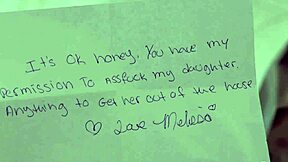 It's Ok honey. You have my
Permission To Assfuck my daughter.
Anything to Get her out of the house
♡ Love Melissa